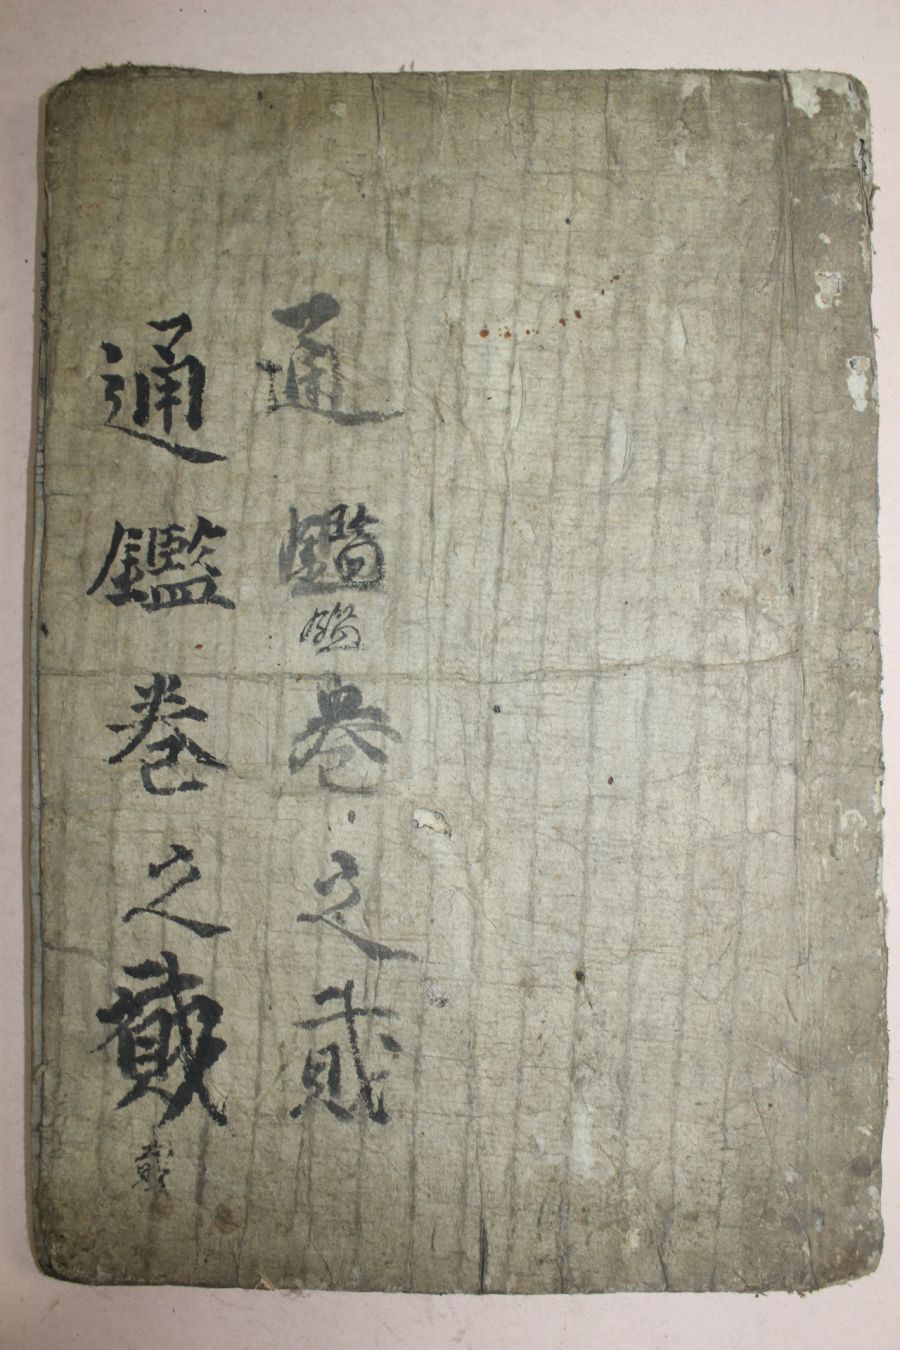 通鑑鑑卷之貳
通鑑卷之貳貳